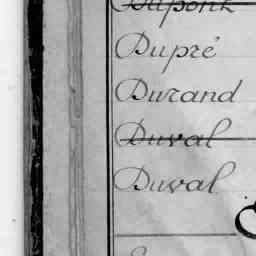 Dupont
Dupré
Durand
Duval
Duval